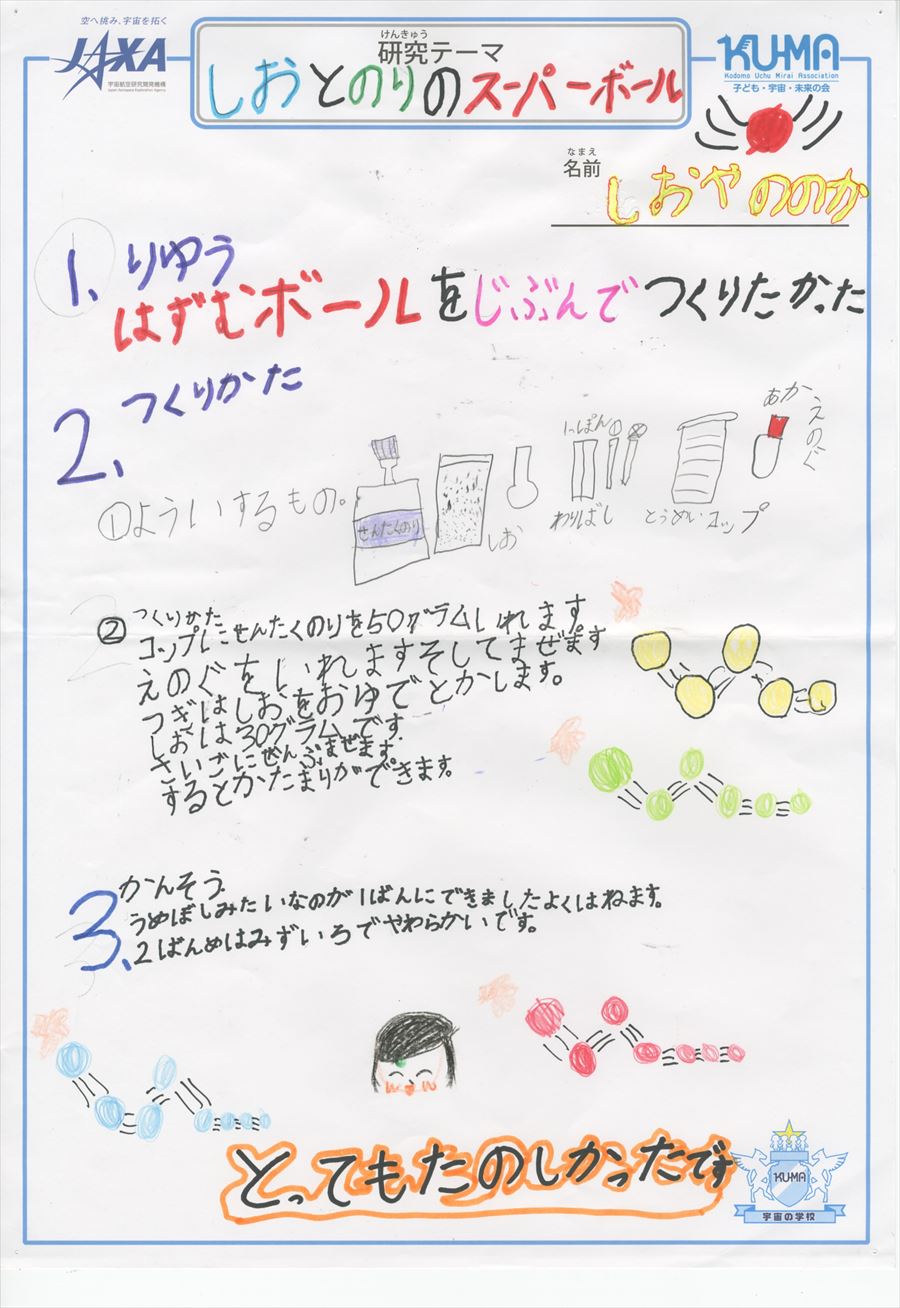 空へ挑み、宇宙を拓く
JAXA
宇宙航空研究開発機構
Japan Aerospace Exploration Agency
けんきゅう
研究テーマ
しおとのりのスーパーボール
KU-MA
Kodomo Uchu Mirai Association
子ども・宇宙・未来の会
なまえ
名前
しおやののか
1、りゆう
はずむボールをじぶんでつくりたかった
2、つくりかた
①よういするもの。
せんたくのり
しお
いっぽん
わりばし
とうめいコップ
あか
えのぐ
② つくりかた
コップにせんたくのりを50グラムいれます。
えのぐをいれますそしてまぜます
つぎはしおをおゆでとかします。
しおは30グラムです。
さいごにぜんぶまぜます。
するとかたまりができます。
3、かんそう
うめぼしみたいなのが1ばんにできましたよくはねます。
2ばんめはみずいろでやわらかいです。
とってもたのしかったです
KUMA
宇宙の学校